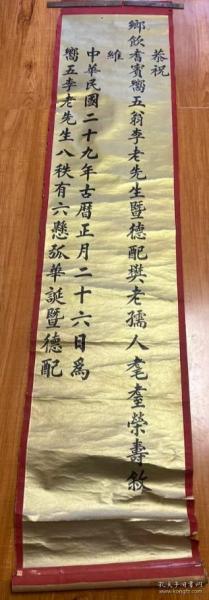 恭祝
鄉飲耆賓嚮五翁李老先生暨德配樊老孺人耄耋榮壽敘
維
中華民國二十九年古曆正月二十六日為
嚮五李老先生八秩有六懸弧華誕暨德配